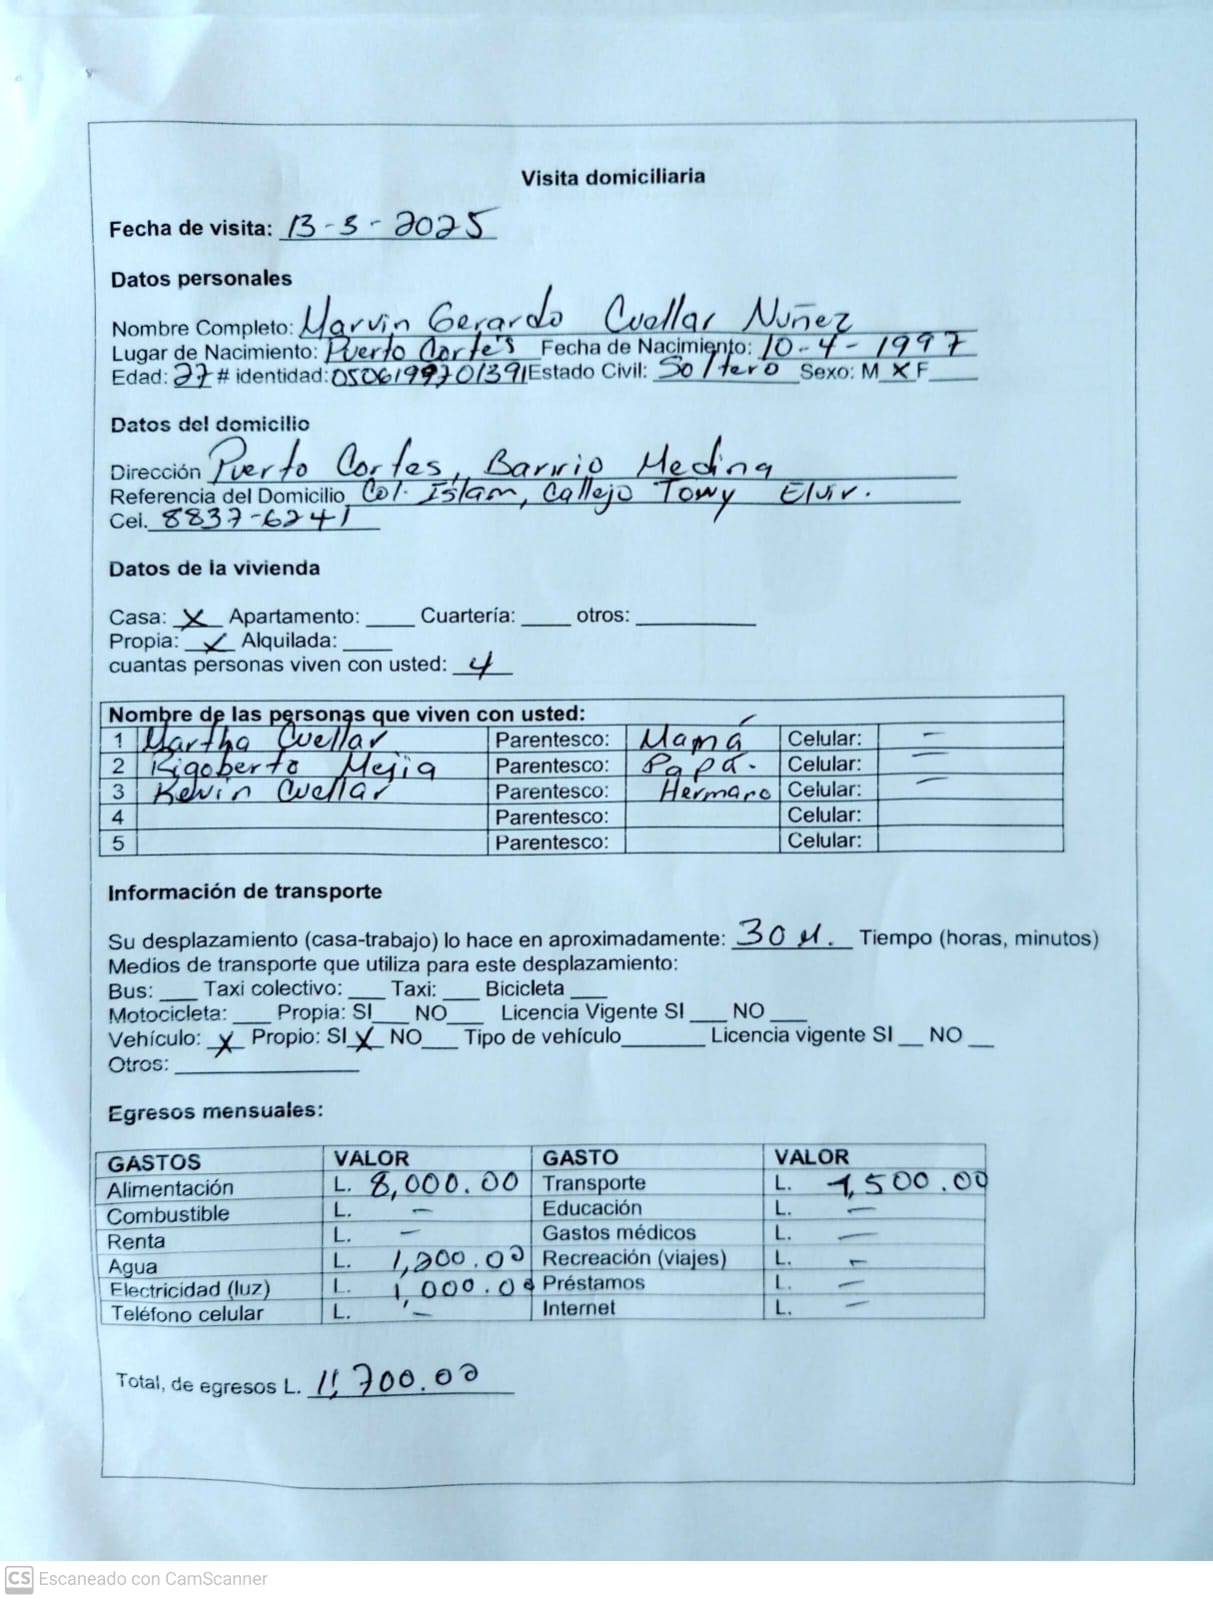 Visita domiciliaria
Fecha de visita: 13-3-2025
Datos personales
Nombre Completo: Marvin Gerardo Cuellar Nuñez
Lugar de Nacimiento: Puerto Cortés Fecha de Nacimiento: 10-4-1997
Edad: 27 # identidad: 0506199701391 Estado Civil: Soltero Sexo: M X F____
Datos del domicilio
Dirección Puerto Cortes, Barrio Medina
Referencia del Domicilio Col. Islam, Callejo Towy Elvir.
Cel. 8837-6241
Datos de la vivienda
Casa: X Apartamento: ____ Cuartería: ____ otros: __________
Propia: ✓ Alquilada: ____
cuantas personas viven con usted: 4
Nombre de las personas que viven con usted:
1 Martha Cuellar Parentesco: Mamá Celular: -
2 Rigoberto Mejia Parentesco: Papá. Celular: -
3 Kevin Cuellar Parentesco: Hermano Celular: -
4 Parentesco: Celular:
5 Parentesco: Celular:
Información de transporte
Su desplazamiento (casa-trabajo) lo hace en aproximadamente: 30 M. Tiempo (horas, minutos)
Medios de transporte que utiliza para este desplazamiento:
Bus: ___ Taxi colectivo: ___ Taxi: ___ Bicicleta ___
Motocicleta: ___ Propia: SI___ NO___ Licencia Vigente SI ___ NO ___
Vehículo: X Propio: SI X NO___ Tipo de vehículo_______ Licencia vigente SI __ NO __
Otros: _______________
Egresos mensuales:
GASTOS VALOR GASTO VALOR
Alimentación L. 8,000.00 Transporte L. 1,500.00
Combustible L. - Educación L. -
Renta L. - Gastos médicos L. -
Agua L. 1,200.00 Recreación (viajes) L. -
Electricidad (luz) L. 1,000.00 Préstamos L. -
Teléfono celular L. - Internet L. -
Total, de egresos L. 11,700.00
CS Escaneado con CamScanner